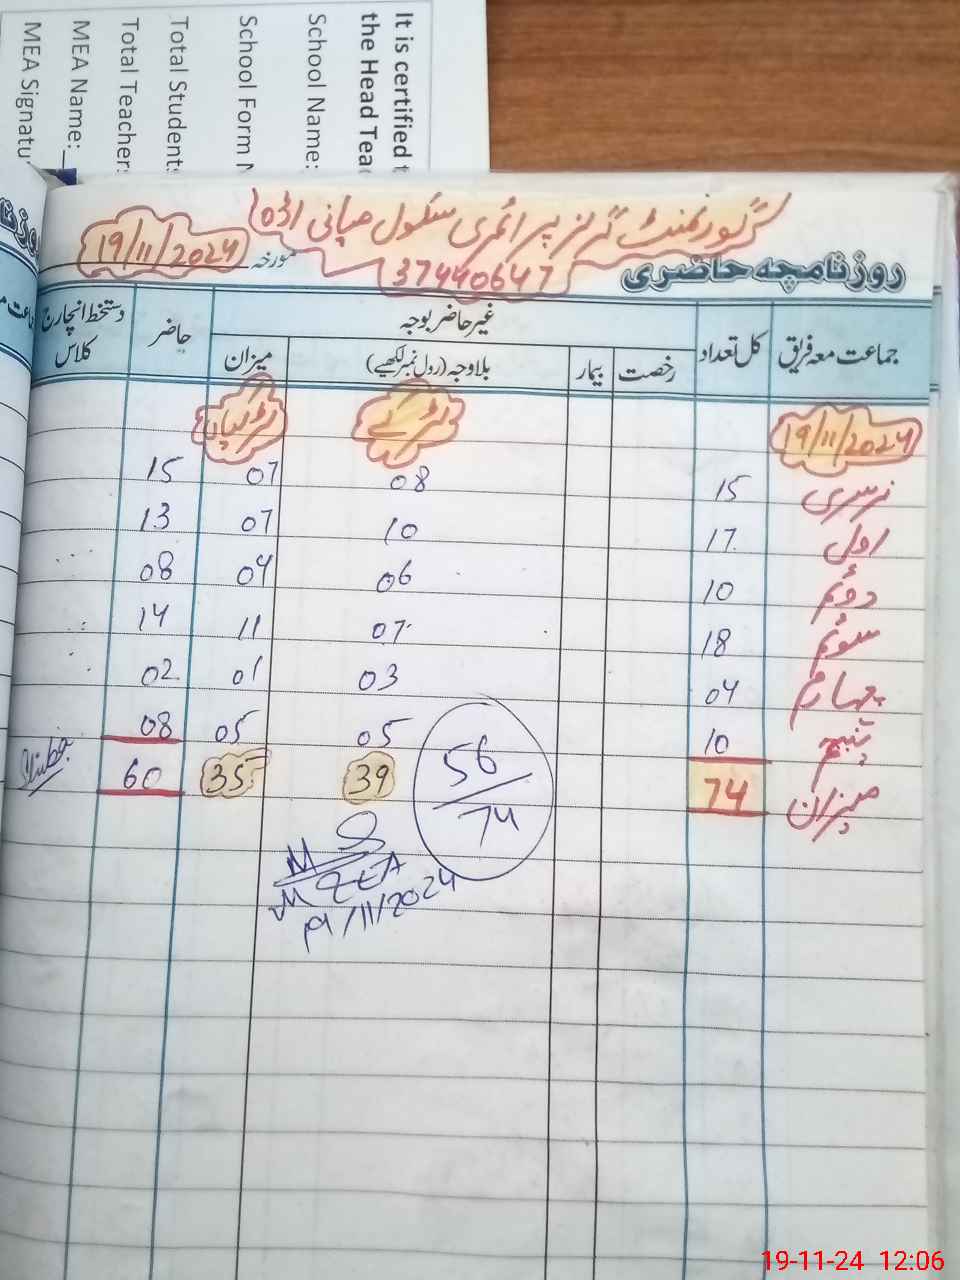 It is certified t
the Head Tea
School Name:
School Form N
Total Students
Total Teachers
MEA Name:
MEA Signatu
گورنمنٹ گرلز پرائمری سکول میانی اڈہ
37440647
روزنامچہ حاضری مورخہ 19/11/2024
جماعت معہ فریق کل تعداد غیر حاضر بوجہ حاضر دستخط انچارج کلاس
رخصت بیمار بلاوجہ (رول نمبر لکھیے) میزان
19/11/2024 لڑکے لڑکیاں
نرسری 15 08 07 15
اول 17 10 07 13
دوئم 10 06 04 08
سوئم 18 07 11 14
چہارم 04 03 01 02
پنجم 10 05 05 08
میزان 74 39 35 60
56
74
MEA
19/11/2024
19-11-24 12:06